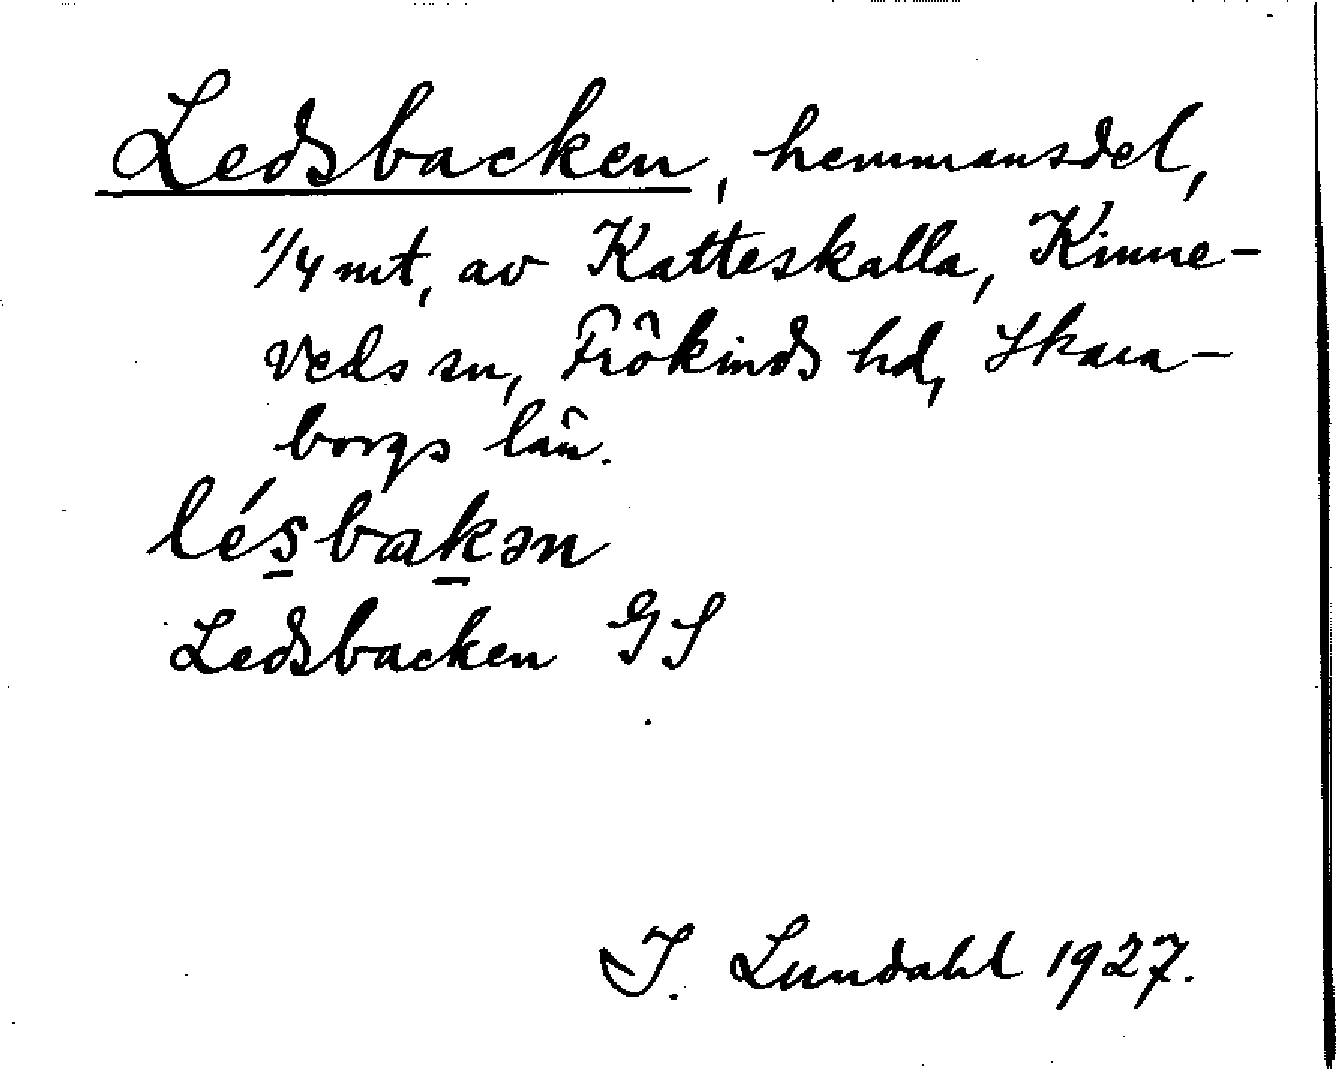 Ledsbacken, hemmansdel,
1/4 mt, av Katteskalla, Kinne-
veds sn, Frökinds hd, Skara-
borgs län.
lésbakən
Ledsbacken GS
I. Lundahl 1927.